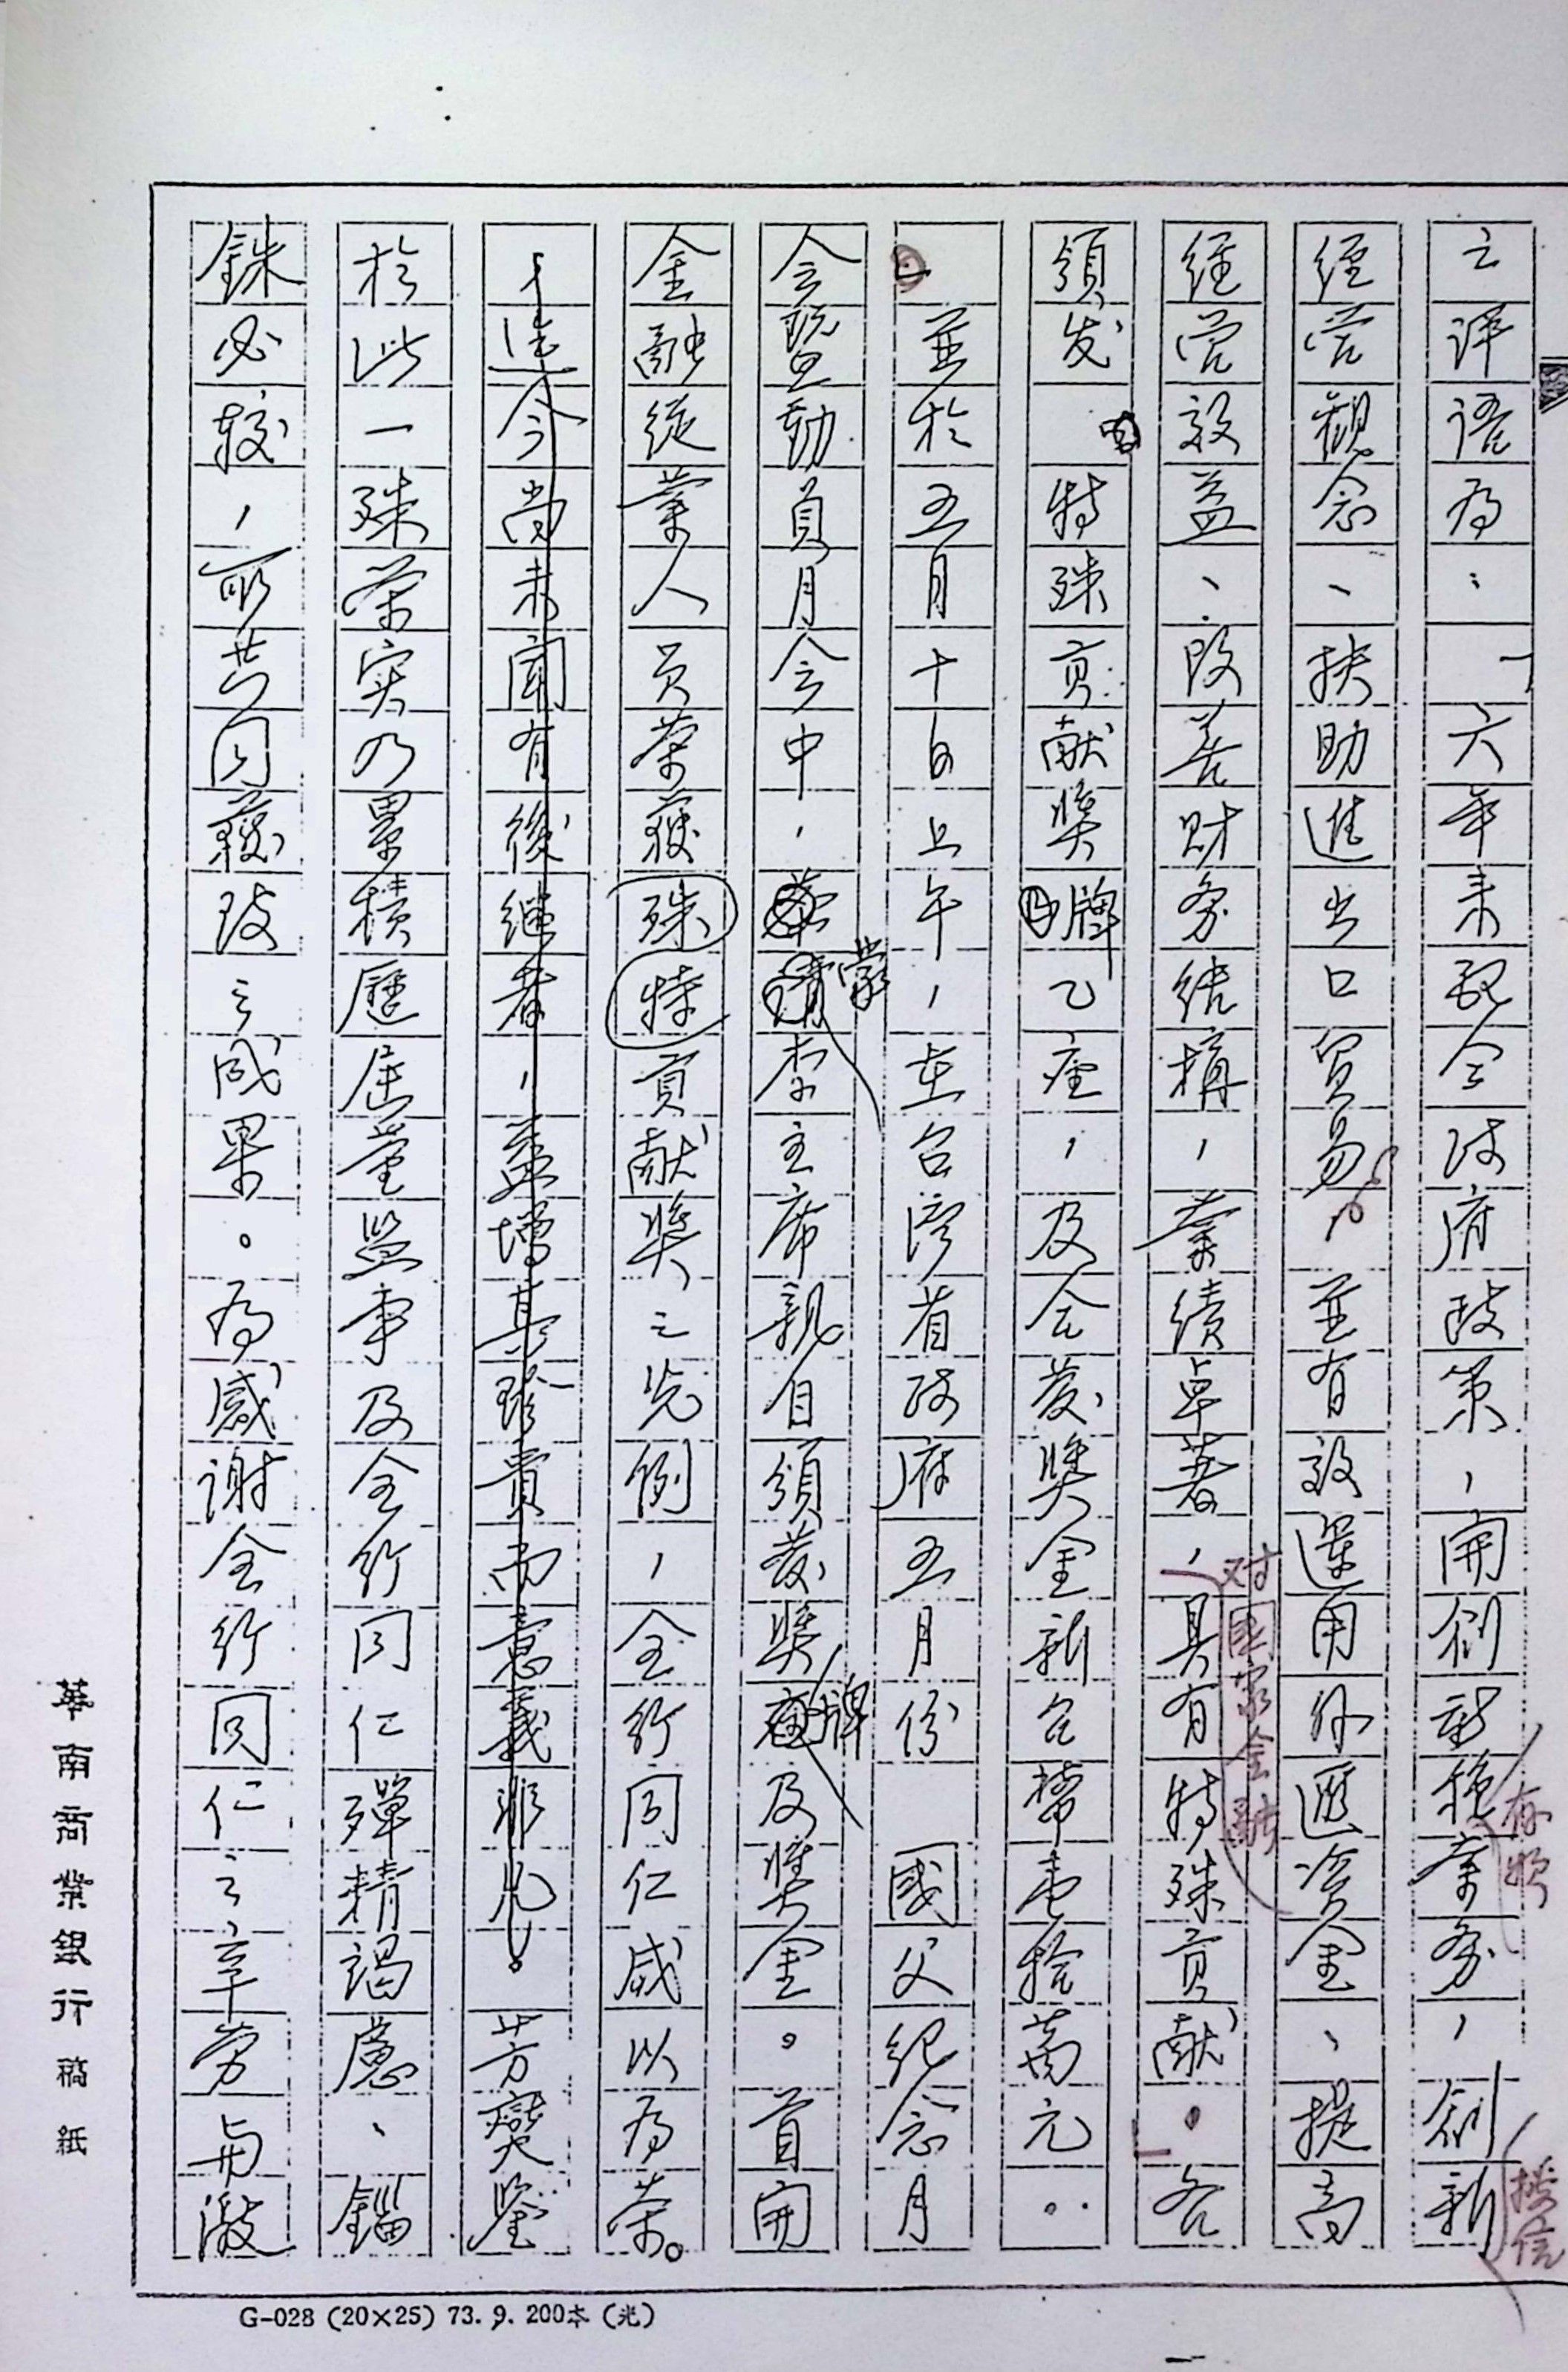 之評語為：「六年來配合政府政策，開創新種業務，創新
存款
授信
經營觀念、扶助進出口貿易，並有效運用外匯資金、提高
經營效益、改善財務結構，業績卓著，具有特殊貢獻。各
對國家金融
頒發特殊貢献獎牌乙座，及合發獎金新台幣壹拾萬元。
並於五月十日上午，在台灣省政府五月份 國父紀念月
會暨動員月會中，李主席親自頒發獎及獎金。首開
蒙
牌
金融從業人員榮獲殊特貢献獎之先例，全行同仁咸以為榮。
，迄今尚未聞有後繼者，益增其珍貴而意義非凡。芳燮鑒
於此一殊榮实乃累積歷屆董監事及全行同仁殫精竭慮、錙
銖必較，所共同獲致之成果。為感謝全行同仁之辛勞與激
華南商業銀行稿紙
G-028 (20×25) 73. 9. 200本 (光)